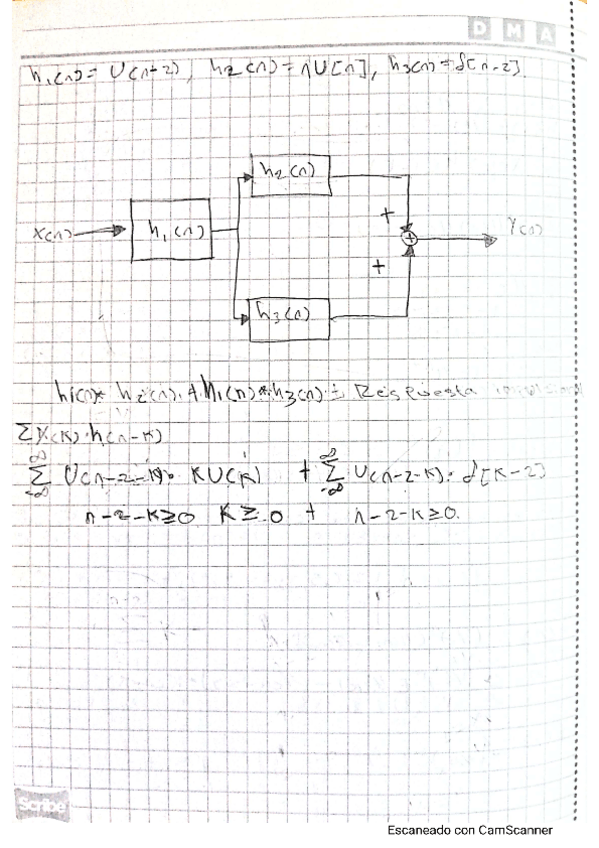 D M A
h₁(n) = U(n-2), h₂(n) = nU[n], h₃(n) = δ[n-2]
h₂(n)
X(n)
h₁(n)
+
Y(n)
+
+
h₃(n)
h₁(n)* h₂(n) + h₁(n)*h₃(n) = Respuesta
ΣX(K)·h(n-K)
∞ ∞
Σ U(n-2-K)· KU(K) + Σ U(n-2-K)· δ[K-2]
-∞ -∞
n-2-K≥0 K≥0 + n-2-K≥0.
Scribe
Escaneado con CamScanner